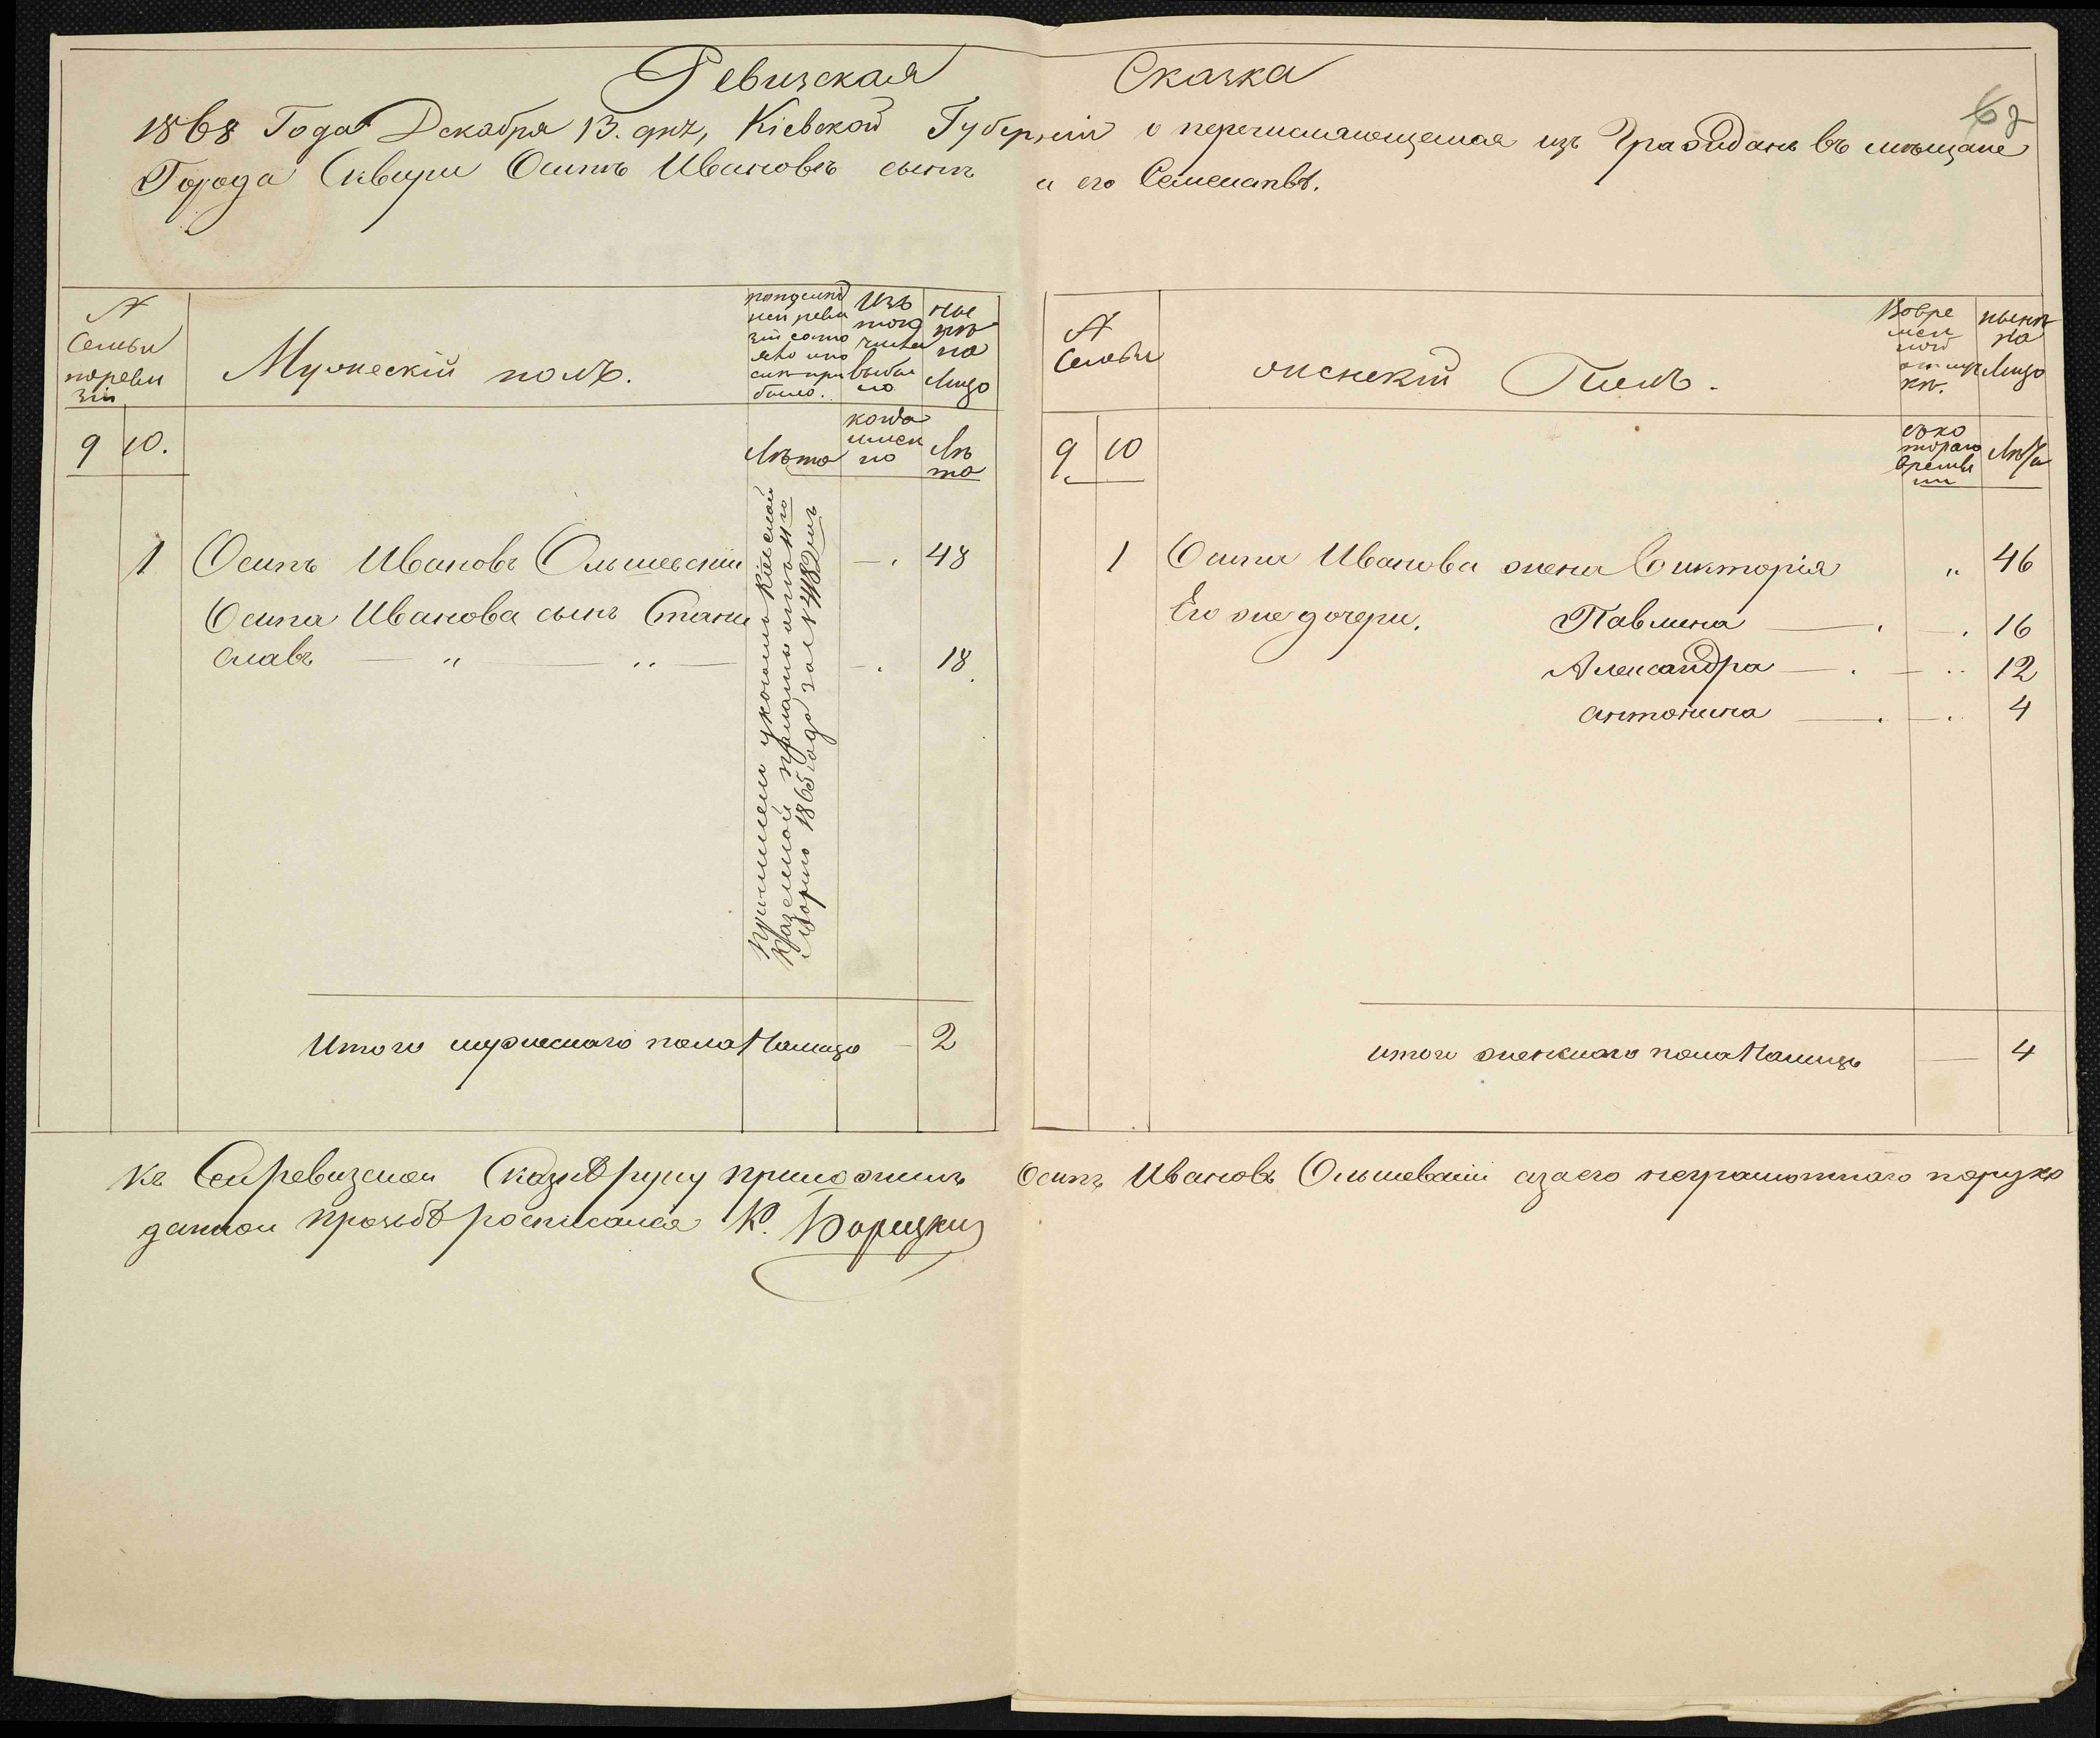 Ревизская Сказка
62
1868 Года Декабря 13. дня, Кіевской Губерніи о перечисляющемся изъ Гражданъ въ мѣщане
Города Сквири Осипъ Ивановъ сынъ и его Семействѣ.
№ Семьи по ревизіи
Мужескій полъ.
по последней ревизіи состояло или после прибыло.
Изъ того числа выбыло
ныне на лицо
9 10.
Лѣта
когда именно
Лѣта
1 Осипъ Ивановъ Ольшевскій — . 48
Осипа Иванова сынъ Станиславъ — „ — „ — . 18.
Причислен указомъ Кіевской
Казенной Палаты отъ 11го
1865 года за № 4482мъ
Итого мужескаго пола На лицо — 2
№ Семьи
женскій Полъ.
Вовременной отлучкѣ.
ныне на Лицо
9 10
съ котораго времени
Лѣта
1 Осипа Иванова жена Викторія „ 46
Его же дочери. Павлина — . — . 16
Александра — . — .. 12
Антонина — . — .. 4
итого женскаго пола На лицо — 4
Къ Сей ревизской Сказкѣ руку приложилъ Осипъ Ивановъ Ольшевскій а за его неграмотнаго по руко
данной прозьбѣ росписался К. Борицкий